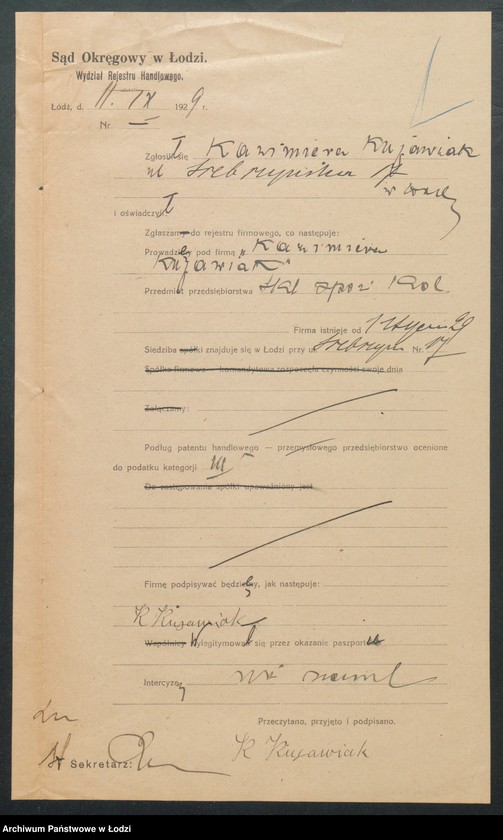 Sąd Okręgowy w Łodzi.
Wydział Rejestru Handlowego.
Łódź, d. 11. IX 1929 r.
Nr.
Zgłosił się Kazimiera Kujawiak
ul Srebrzyńska 17
w Łodzi
i oświadczył:
Zgłaszam do rejestru firmowego, co następuje:
Prowadzę pod firmą „Kazimiera
Kujawiak"
Przedmiot przedsiębiorstwa skl spoż i kol.
Firma istnieje od 1 stycznia 29
Siedziba spółki znajduje się w Łodzi przy ul. Srebrzyń. Nr. 17
Spółka firmowa — komandytowa rozpoczęła czynności swoje dnia
Załączamy:
Podług patentu handlowego — przemysłowego przedsiębiorstwo ocenione
do podatku kategorji III
Do zastępowania spółki upoważniony jest
Firmę podpisywać będę, jak następuje:
K Kujawiak
Wspólnicy wylegitymował się przez okazanie paszportu
Intercyzy nie zawarł
Przeczytano, przyjęto i podpisano.
K Kujawiak
Sekretarz:
Archiwum Państwowe w Łodzi